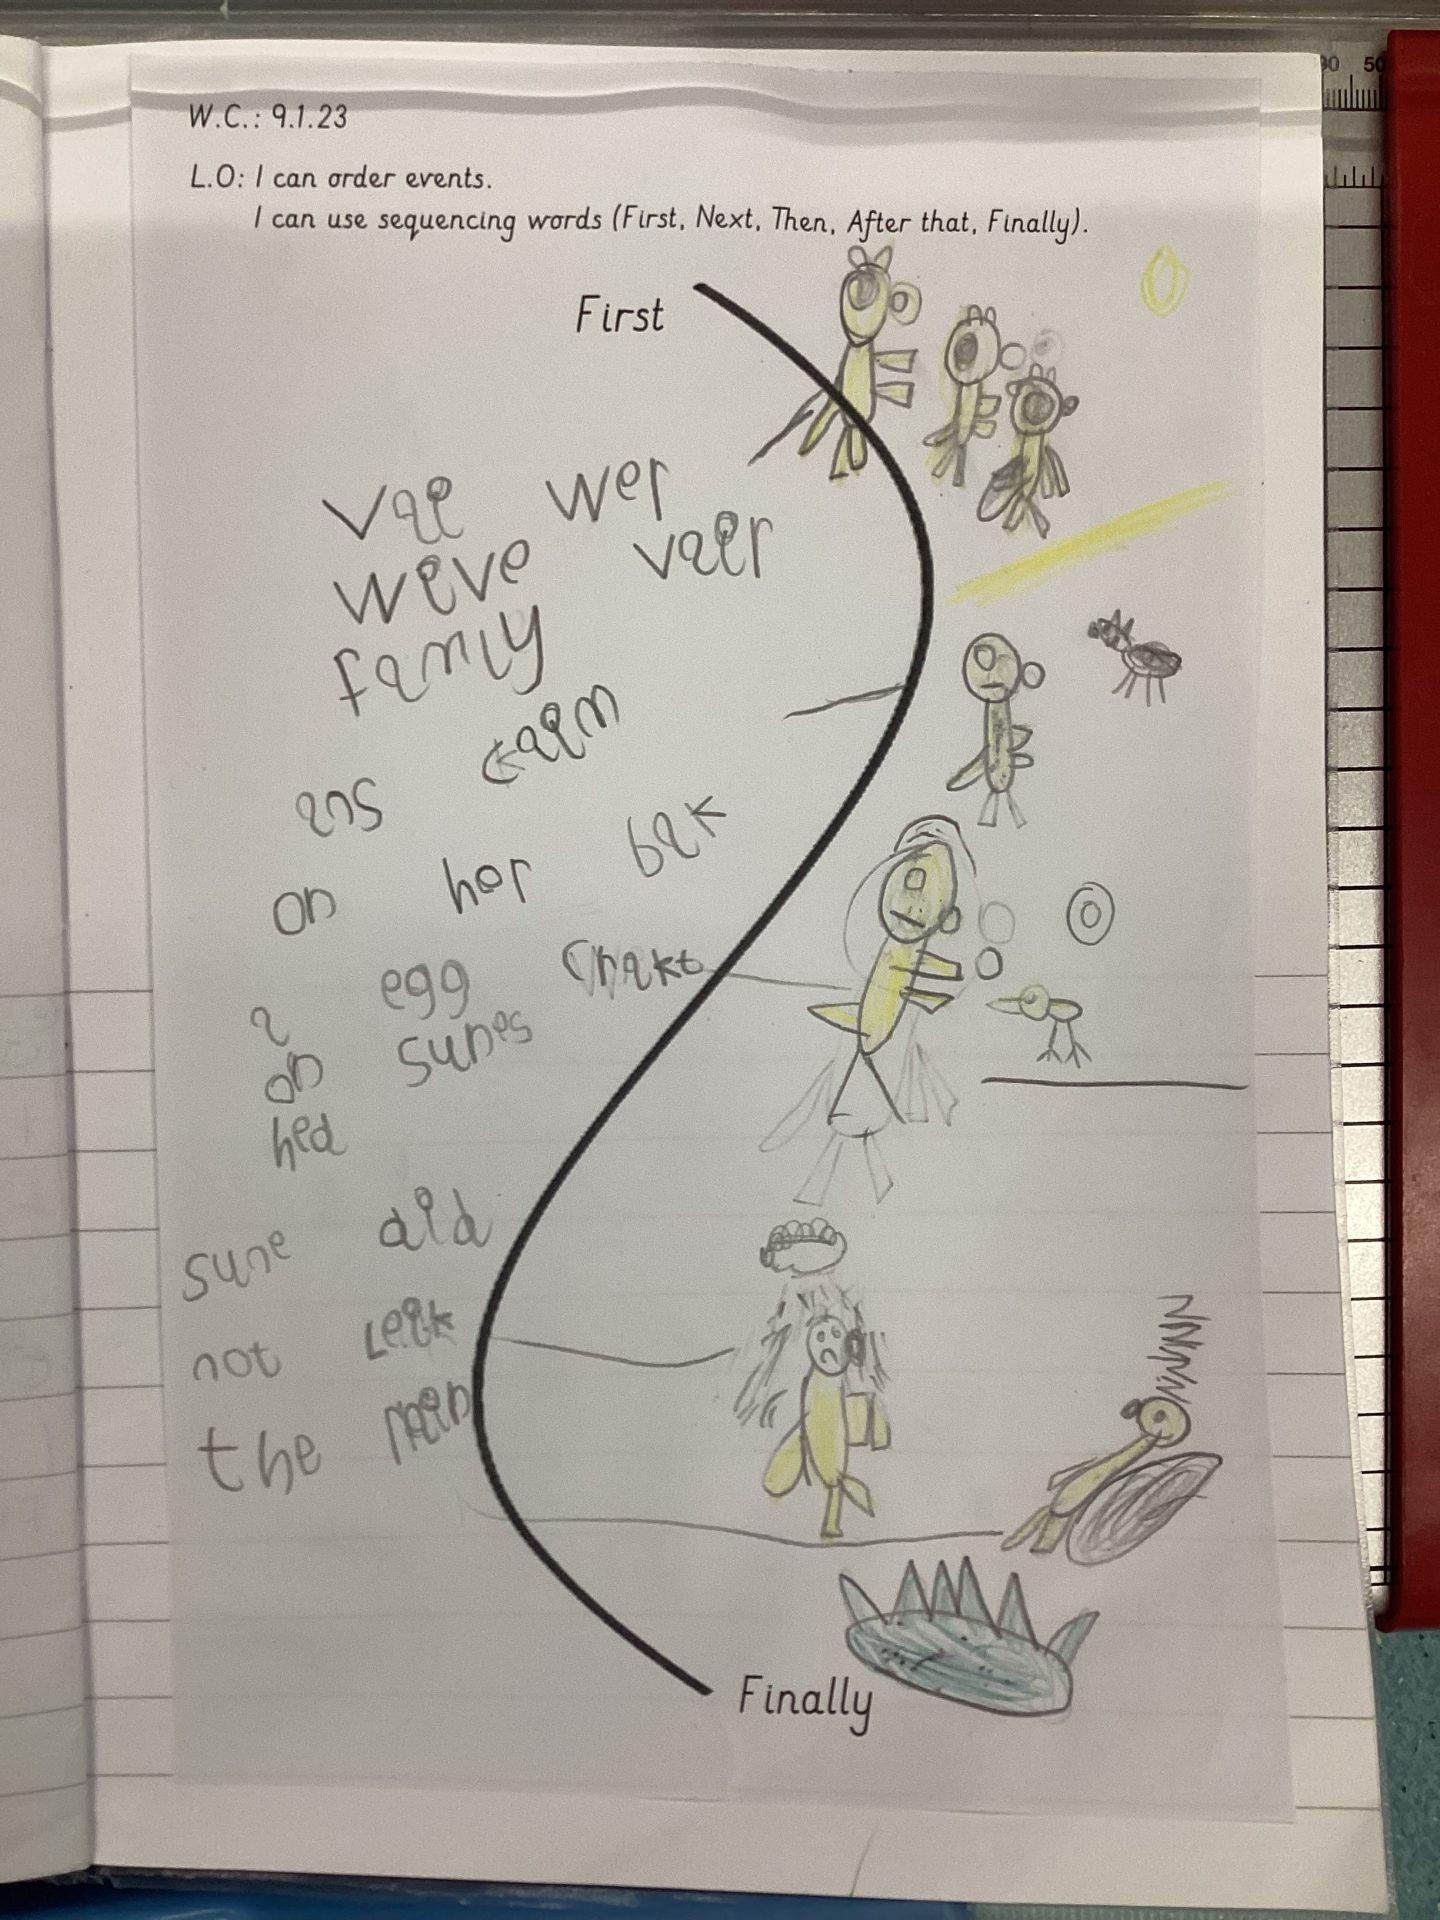 W.C.: 9.1.23
L.O: I can order events.
I can use sequencing words (First, Next, Then, After that, Finally).
First
vae wer
weve vaer
famly
ans caem
on her bak
a egg crakt
on sunes
hed
sune did
not leik
the raen
Finally
30 50